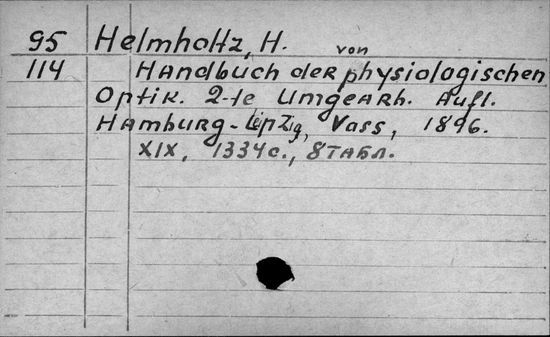 95 Helmholtz, H. von
114 Handbuch der physiologischen
Optik. 2-te Umgearb. Aufl.
Hamburg-Leipzig, Vass, 1896.
XIX, 1334 с., 8 табл.